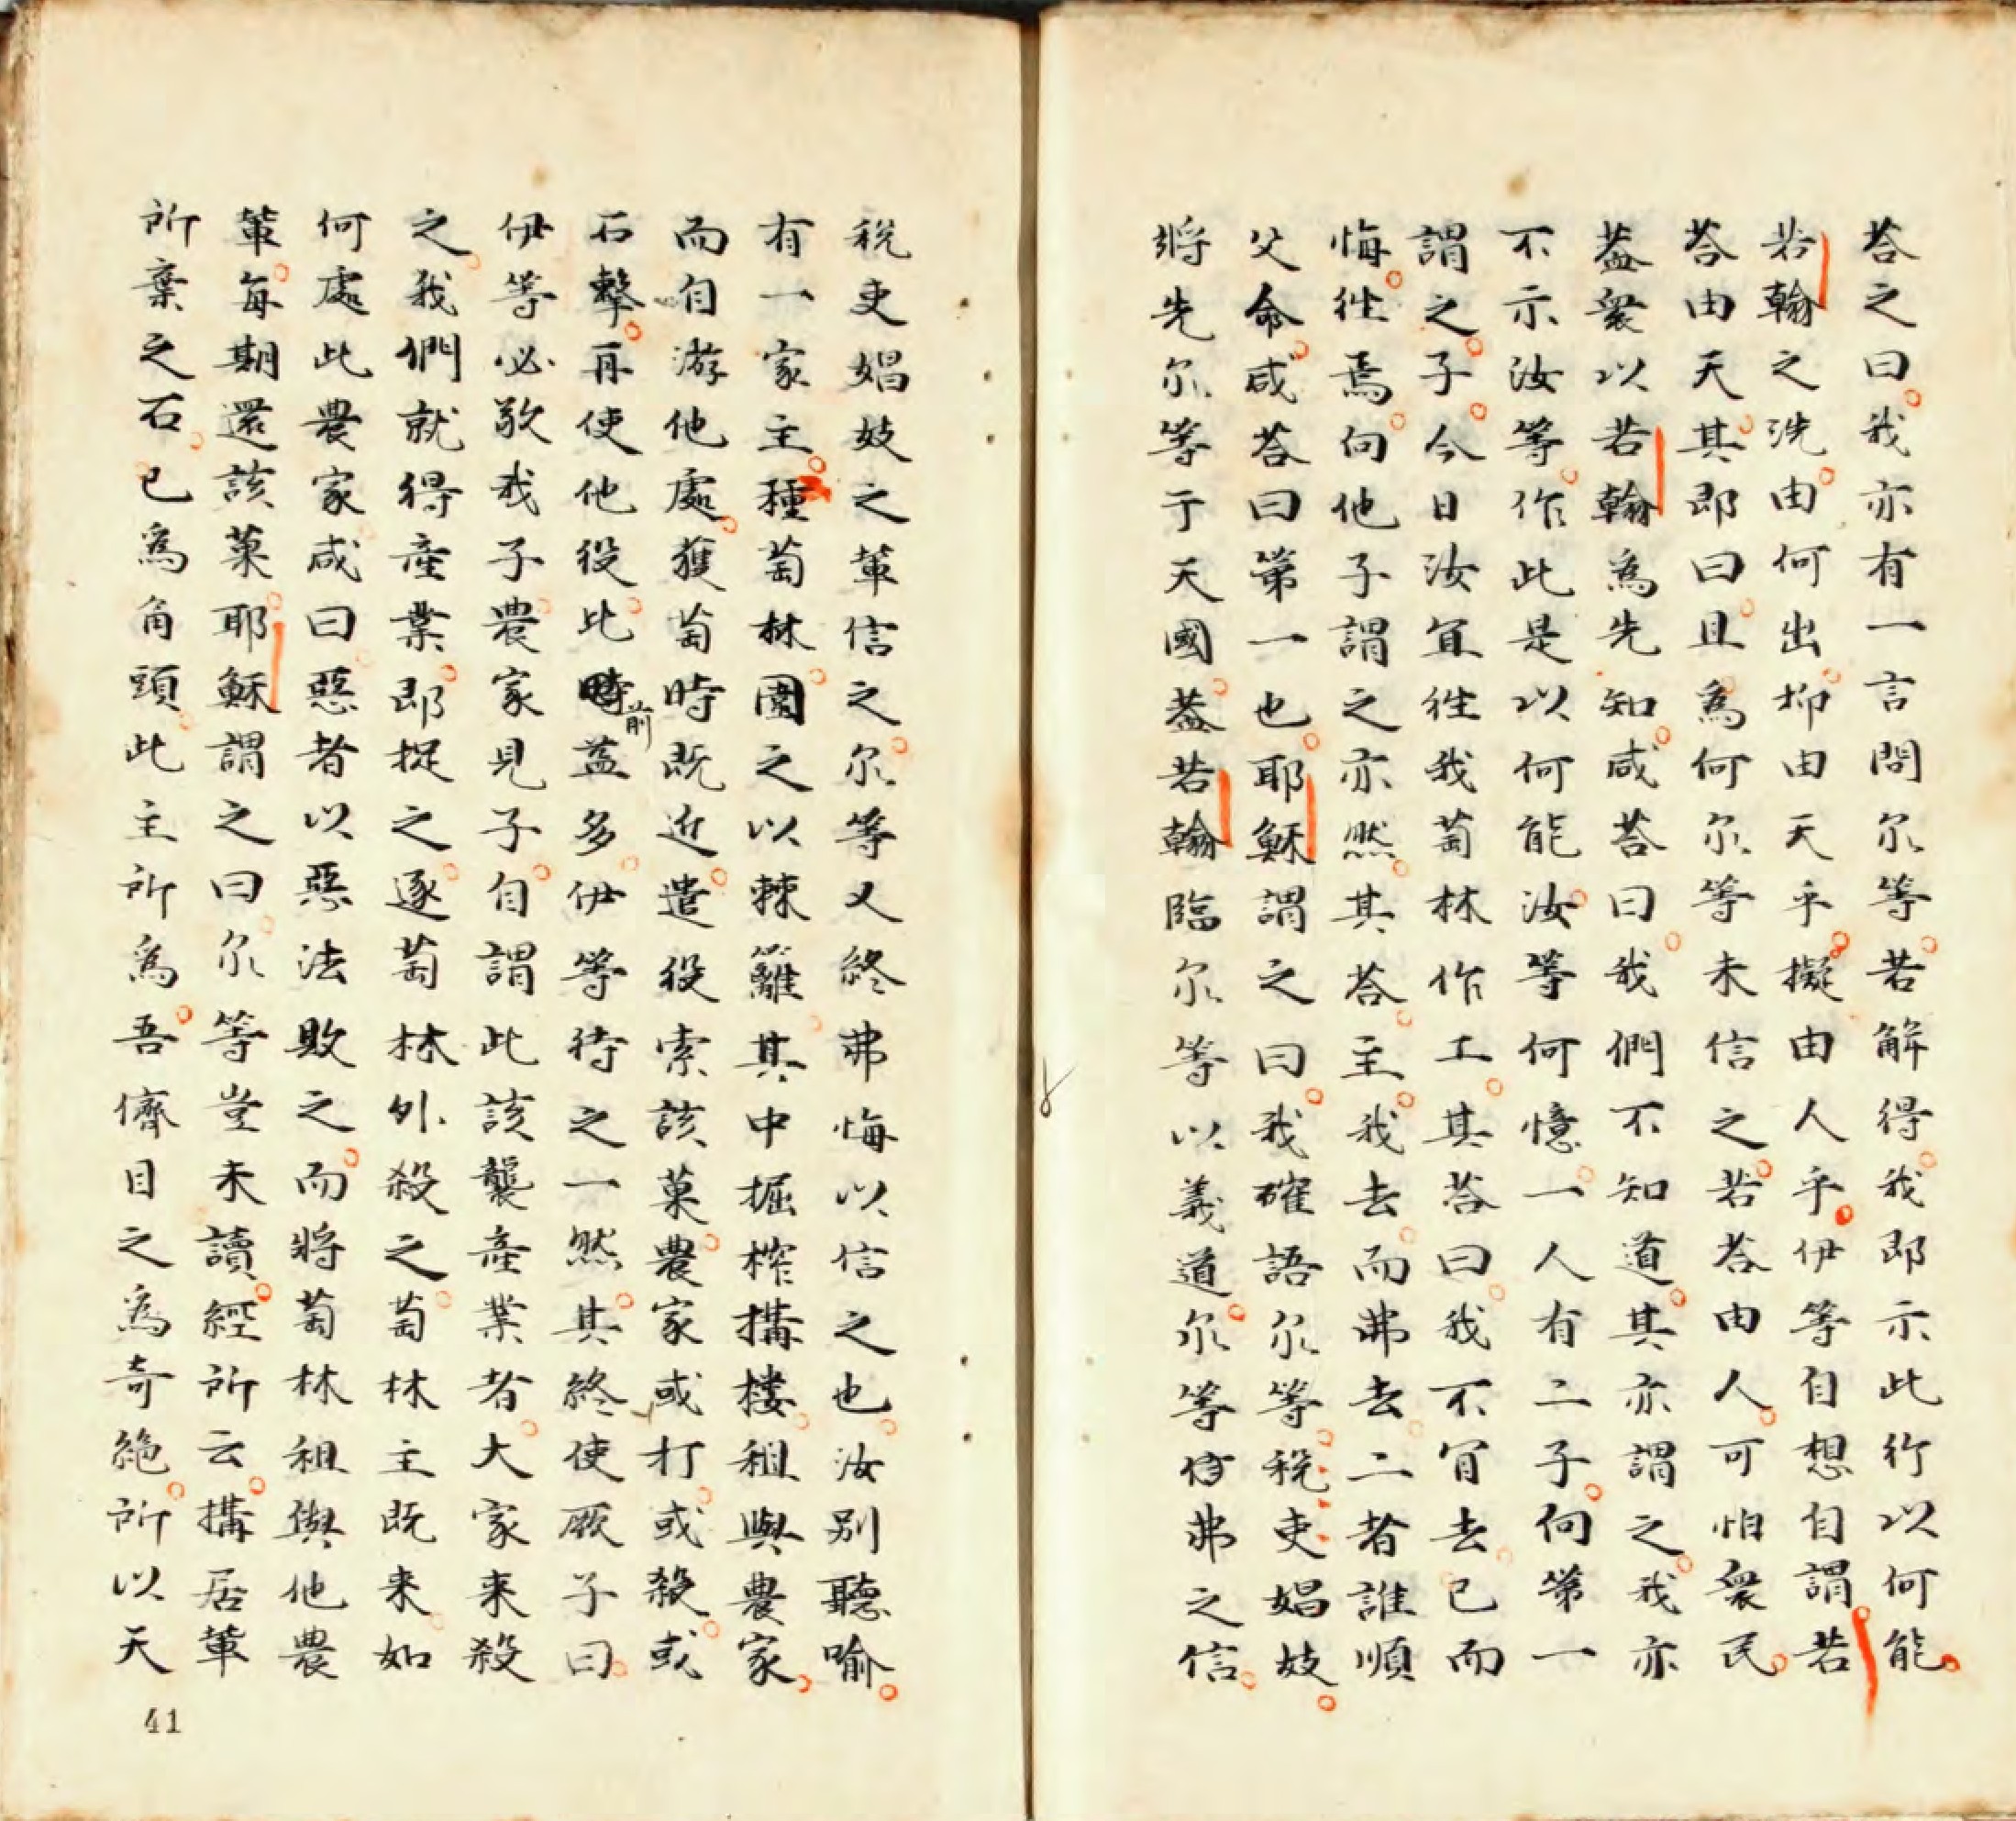 荅之曰我亦有一言問尔等若解得我即示此行以何能
若翰之洗由何出抑由天乎擬由人乎伊等自想自謂若
荅由天其即曰且為何尔等未信之若荅由人可怕衆民
葢衆以若翰為先知咸荅曰我們不知道其亦謂之我亦
不示汝等作此是以何能汝等何憶一人有二子向第一
謂之子今日汝宜徃我萄林作工其荅曰我不肎去已而
悔徃焉向他子謂之亦然其荅主我去而弗去二者誰順
父命咸荅曰第一也耶穌謂之曰我確語尔等税吏娼妓
將先尔等于天國葢若翰臨尔等以義道尔等弗之信
税吏娼妓之軰信之尔等又終弗悔以信之也汝别聽喻
有一家主種萄林園之以棘籬其中掘榨搆楼租與農家
而自游他處獲萄時既近遣役索該菓農家或打或殺或
石擊再使他役比前葢多伊等待之一然其終使厥子曰
伊等必敬我子農家見子自謂此該襲產業者大家来殺
之我們就得產業即捉之逐萄林外殺之萄林主既来如
何處此農家咸曰惡者以惡法敗之而將萄林租與他農
軰每期還該菓耶穌謂之曰尔等豈未讀經所云搆居軰
所棄之石已為角頭此主所為吾儕目之為奇絶所以天
41